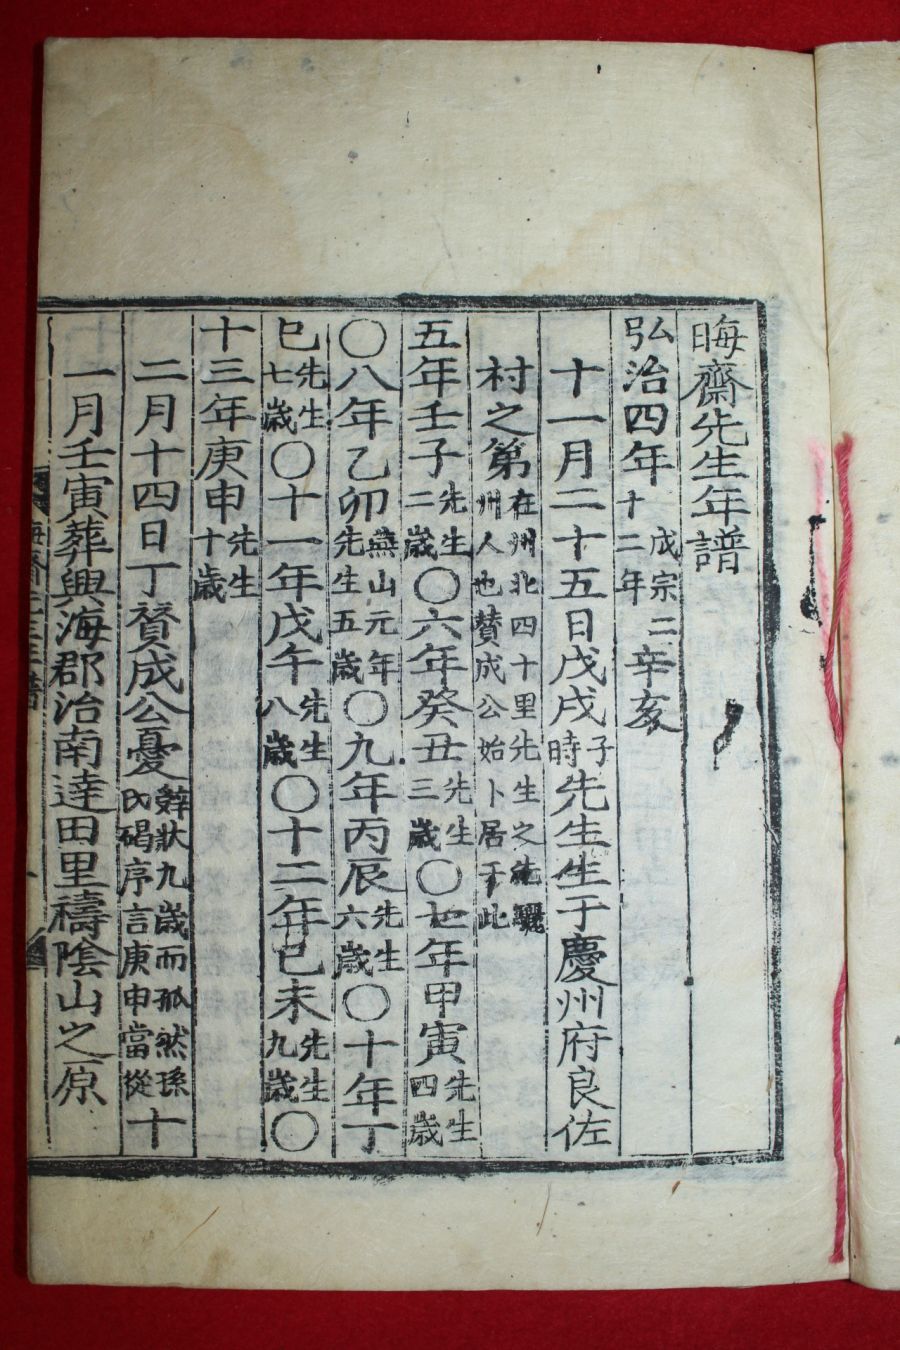 晦齋先生年譜
弘治四年成宗二十二年辛亥
十一月二十五日戊戌子時先生生于慶州府良佐
村之第在州北四十里先生之先驪州人也贊成公始卜居于此
五年壬子先生二歲〇六年癸丑先生三歲〇七年甲寅先生四歲
〇八年乙卯燕山元年先生五歲〇九年丙辰先生六歲〇十年丁
巳先生七歲〇十一年戊午先生八歲〇十二年己未先生九歲〇
十三年庚申先生十歲
二月十四日丁贊成公憂辭狀九歲而孤然孫氏碣序言庚申當從十
一月壬寅葬興海郡治南達田里禱陰山之原